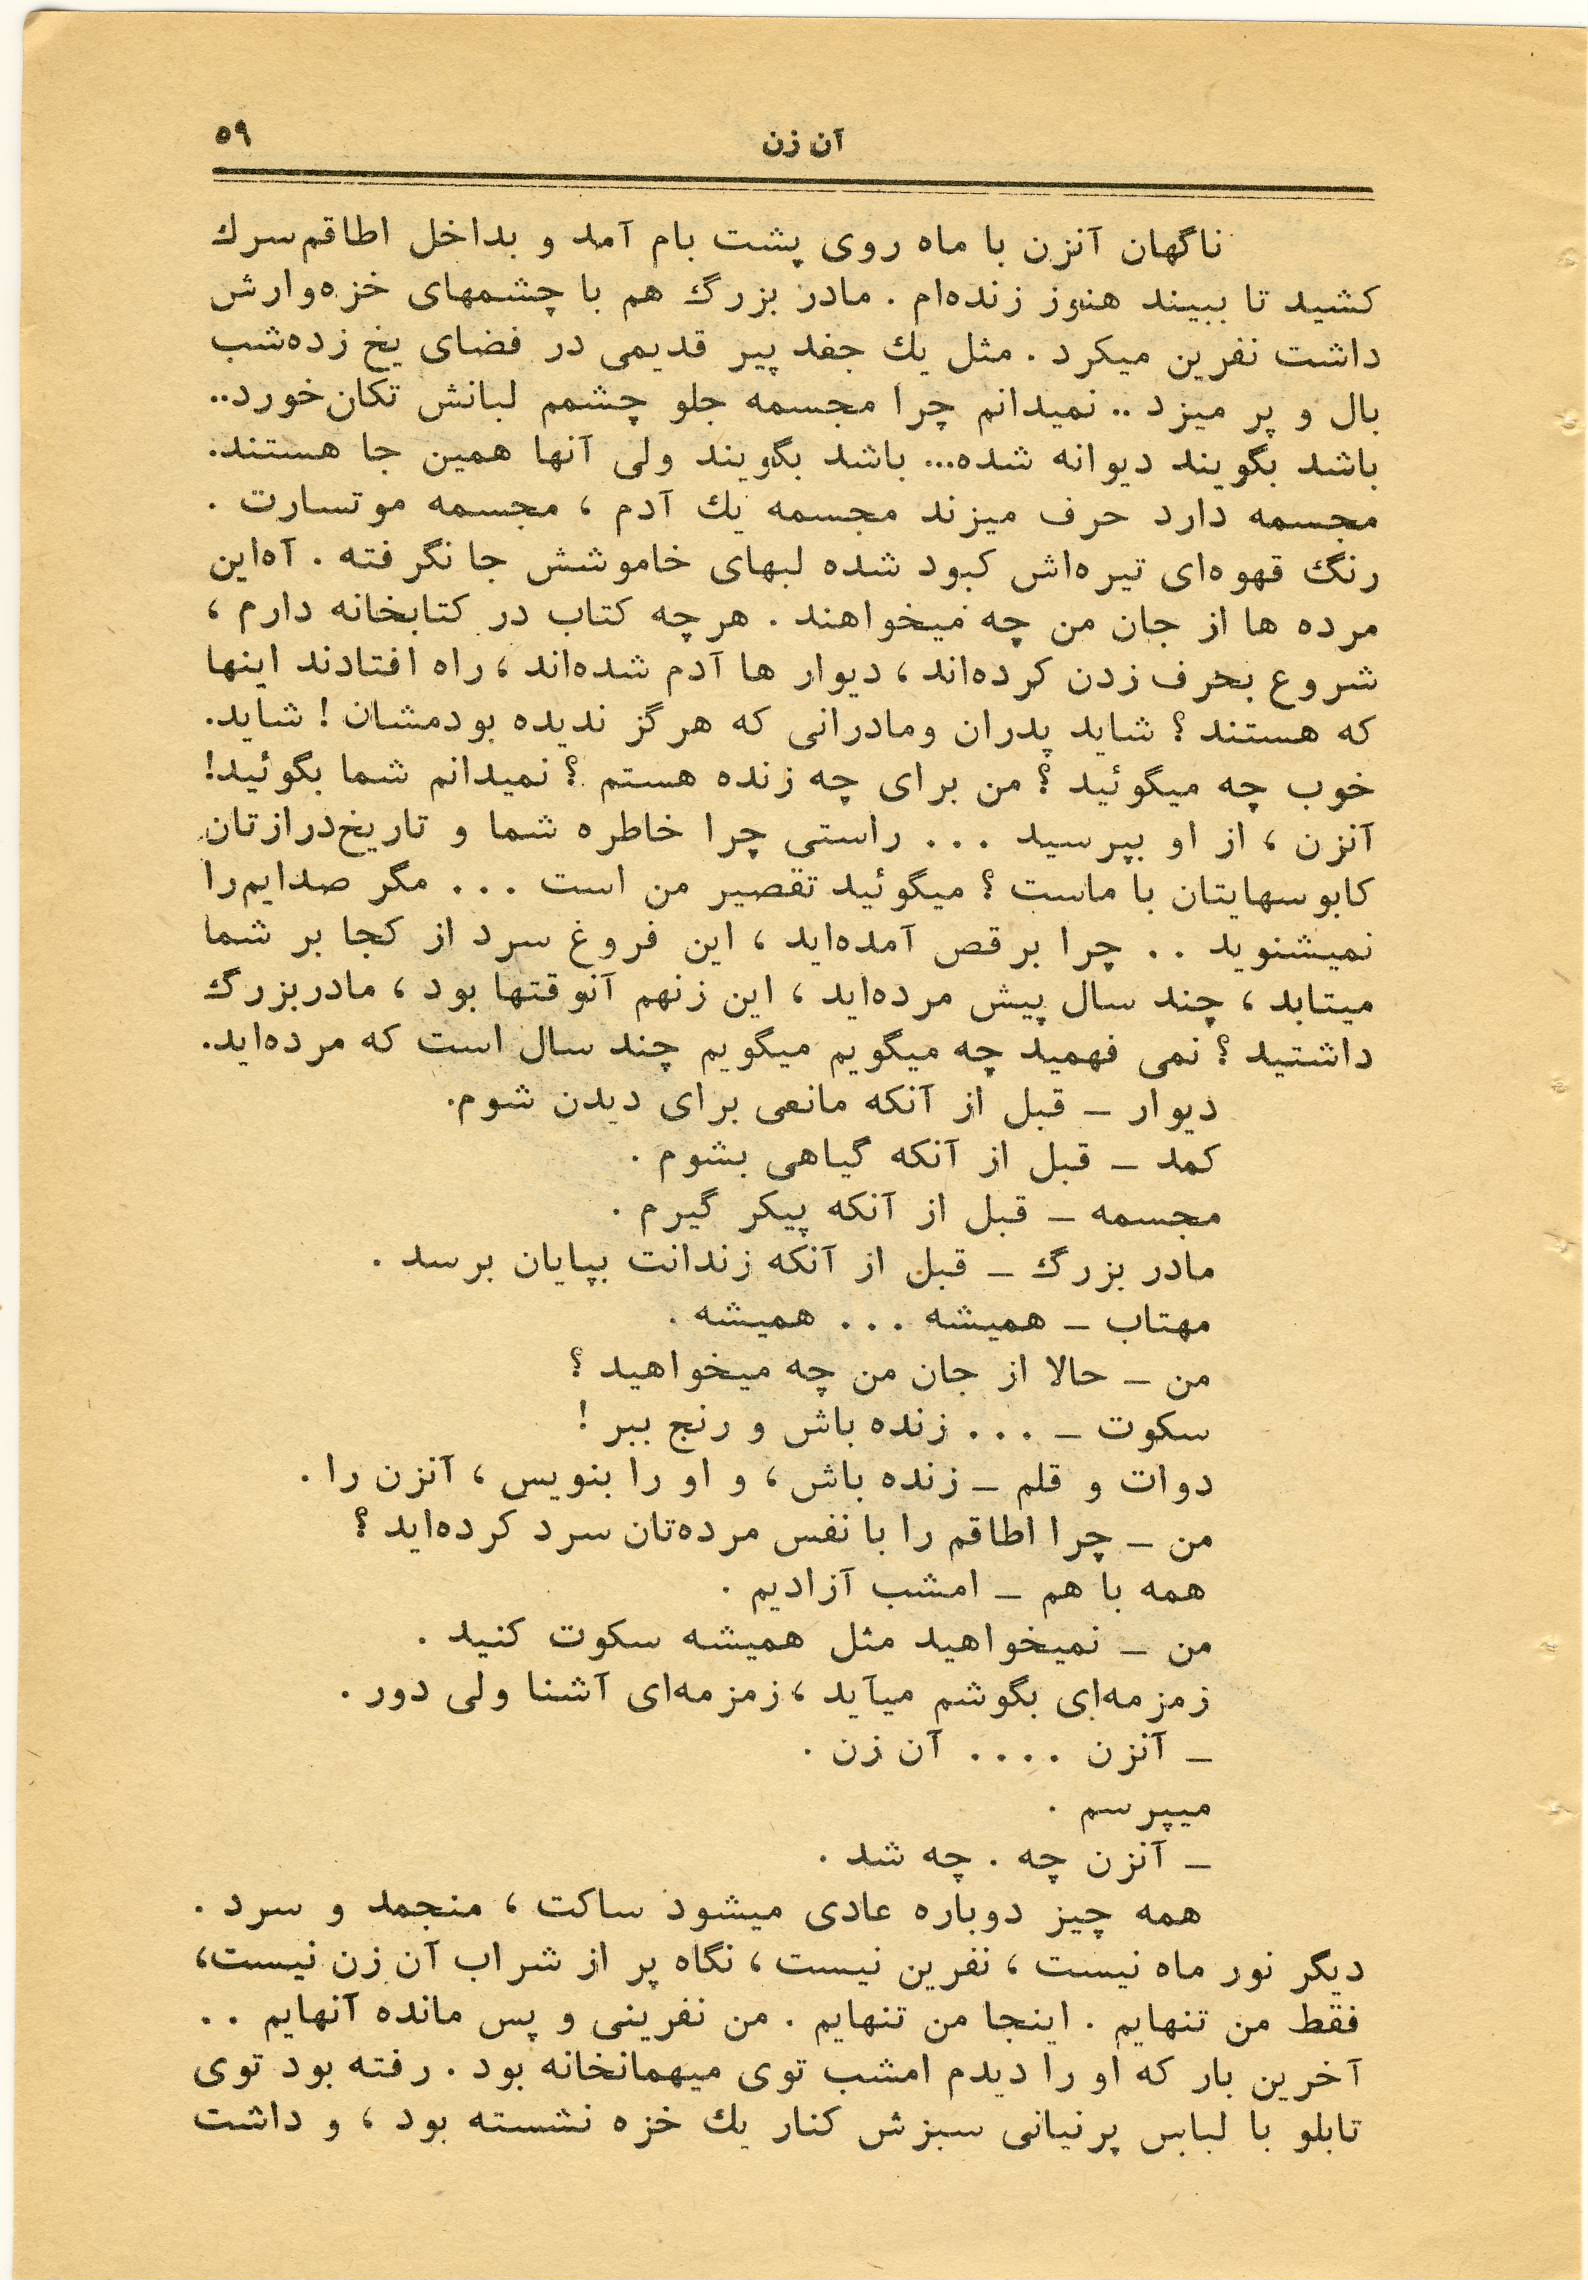 آن زن ۵۹
ناگهان آنزن با ماه روی پشت بام آمد و بداخل اطاقم سرك
کشید تا ببیند هنوز زنده‌ام . مادر بزرگ هم با چشمهای خزه‌وارش
داشت نفرین میکرد . مثل یك جغد پیر قدیمی در فضای یخ زده‌شب
بال و پر میزد .. نمیدانم چرا مجسمه جلو چشمم لبانش تکان خورد..
باشد بگویند دیوانه شده... باشد بگویند ولی آنها همین جا هستند.
مجسمه دارد حرف میزند مجسمه یك آدم ، مجسمه موتسارت .
رنگ قهوه‌ای تیره‌اش کبود شده لبهای خاموشش جا نگرفته . آه‌این
مرده ها از جان من چه میخواهند . هرچه کتاب در کتابخانه دارم ،
شروع بحرف زدن کرده‌اند ، دیوار ها آدم شده‌اند ، راه افتادند اینها
که هستند ؟ شاید پدران ومادرانی که هرگز ندیده بودمشان ! شاید.
خوب چه میگوئید ؟ من برای چه زنده هستم ؟ نمیدانم شما بگوئید!
آنزن ، از او بپرسید . . . راستی چرا خاطره شما و تاریخ‌درازتان
کابوسهایتان با ماست ؟ میگوئید تقصیر من است . . . مگر صدایم‌را
نمیشنوید . . چرا برقص آمده‌اید ، این فروغ سرد از کجا بر شما
میتابد ، چند سال پیش مرده‌اید ، این زنهم آنوقتها بود ، مادربزرگ
داشتید ؟ نمی فهمید چه میگویم میگویم چند سال است که مرده‌اید.
دیوار – قبل از آنکه مانعی برای دیدن شوم.
کمد – قبل از آنکه گیاهی بشوم .
مجسمه – قبل از آنکه پیکر گیرم .
مادر بزرگ – قبل از آنکه زندانت بپایان برسد .
مهتاب – همیشه . . . همیشه .
من – حالا از جان من چه میخواهید ؟
سکوت – . . . زنده باش و رنج ببر !
دوات و قلم – زنده باش ، و او را بنویس ، آنزن را .
من – چرا اطاقم را با نفس مرده‌تان سرد کرده‌اید ؟
همه با هم – امشب آزادیم .
من – نمیخواهید مثل همیشه سکوت کنید .
زمزمه‌ای بگوشم میآید ، زمزمه‌ای آشنا ولی دور .
– آنزن . . . . آن زن .
میپرسم .
– آنزن چه . چه شد .
همه چیز دوباره عادی میشود ساکت ، منجمد و سرد .
دیگر نور ماه نیست ، نفرین نیست ، نگاه پر از شراب آن زن نیست،
فقط من تنهایم . اینجا من تنهایم . من نفرینی و پس مانده آنهایم . .
آخرین بار که او را دیدم امشب توی میهمانخانه بود . رفته بود توی
تابلو با لباس پرنیانی سبزش کنار یك خزه نشسته بود ، و داشت